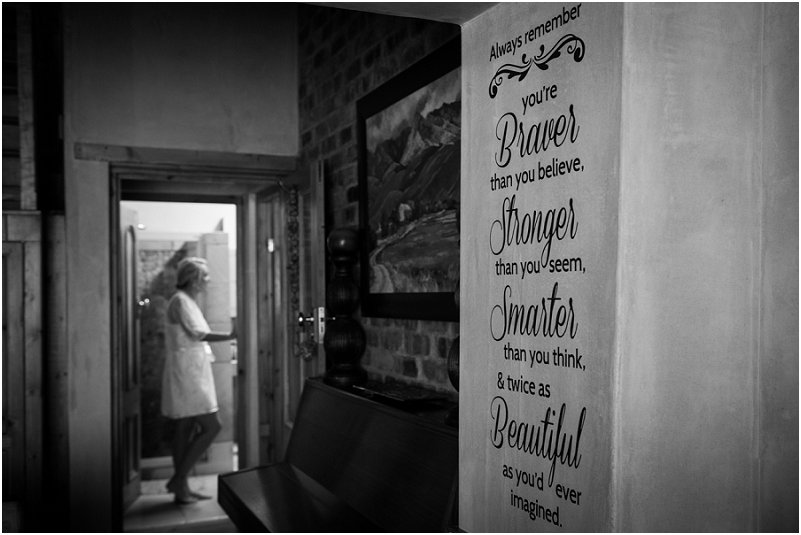 Always remember
you're
Braver
than you believe,
Stronger
than you seem,
Smarter
than you think,
& twice as
Beautiful
as you'd ever
imagined.